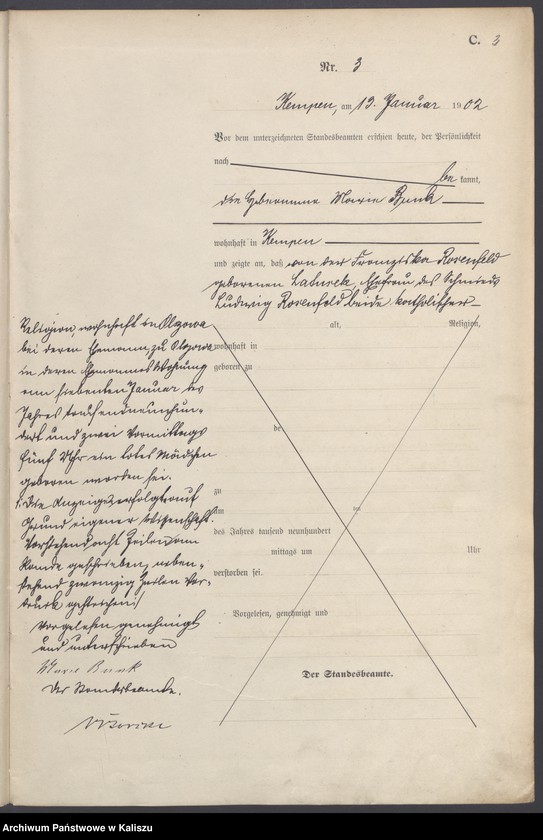 C. 3
Nr. 3
Kempen, am 13. Januar 1902
Vor dem unterzeichneten Standesbeamten erschien heute, der Persönlichkeit
nach
be kannt,
die Hebamme Marie Bunk
wohnhaft in Kempen
und zeigte an, daß von der Franziska Rosenfeld
geborenen Laburek, Ehefrau des Schmieds
Ludwig Rosenfeld beide katholischer
alt, Religion,
wohnhaft in
geboren zu
de
zu
am ten
des Jahres tausend neunhundert
mittags um Uhr
verstorben sei.
Vorgelesen, genehmigt und
Der Standesbeamte.
Religion, wohnhaft in Olszowa
bei deren Ehemann, zu Olszowa
in deren Ehemannes Wohnung
am siebenten Januar des
Jahres tausendneunhun-
dert und zwei Vormittags
fünf Uhr ein totes Mädchen
geboren worden sei.
Die Anzeige erfolgt auf
Grund eigener Wissenschaft.
Vorstehend acht Zeilen am
Rande geschrieben, neben-
stehend zwanzig Zeilen Vor-
druck gestrichen!
Vorgelesen genehmigt
und unterschrieben
Marie Bunk
Der Standesbeamte.
Archiwum Państwowe w Kaliszu